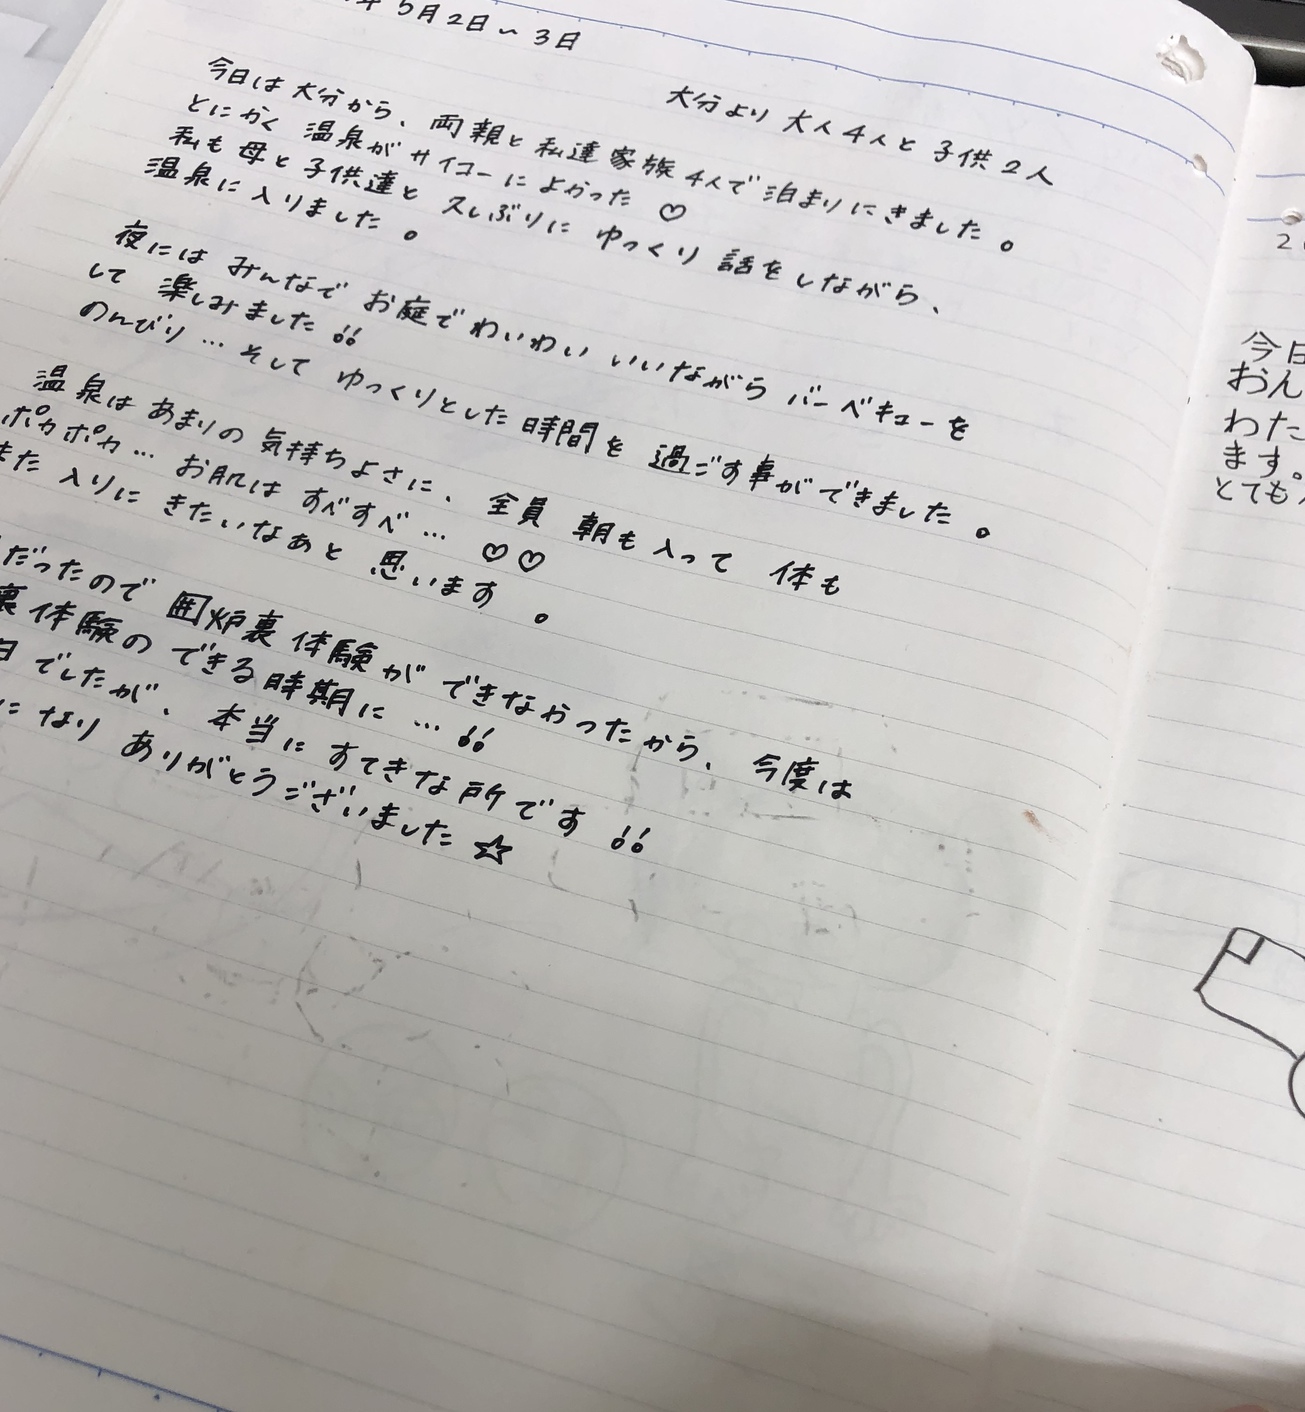 年 5月2日〜3日
大分より 大人4人と 子供2人
今日は 大分から、両親と 私達家族 4人で 泊まりにきました。
とにかく 温泉が サイコーに よかった ♡
私も 母と 子供達と 久しぶりに ゆっくり 話をしながら、
温泉に 入りました。
夜には みんなで お庭で わいわい いいながら バーベキューを
して 楽しみました !!
のんびり… そして ゆっくりとした 時間を 過ごす事ができました。
温泉は あまりの 気持ちよさに、全員 朝も 入って 体も
ポカポカ… お肌は すべすべ… ♡♡
また 入りに きたいなぁと 思います。
だったので 囲炉裏 体験が できなかったから、今度は
裏 体験の できる 時期に… !!
日 でしたが、本当に すてきな 所です !!
に なり ありがとうございました ☆
今日
おん
わた
ます。
とても